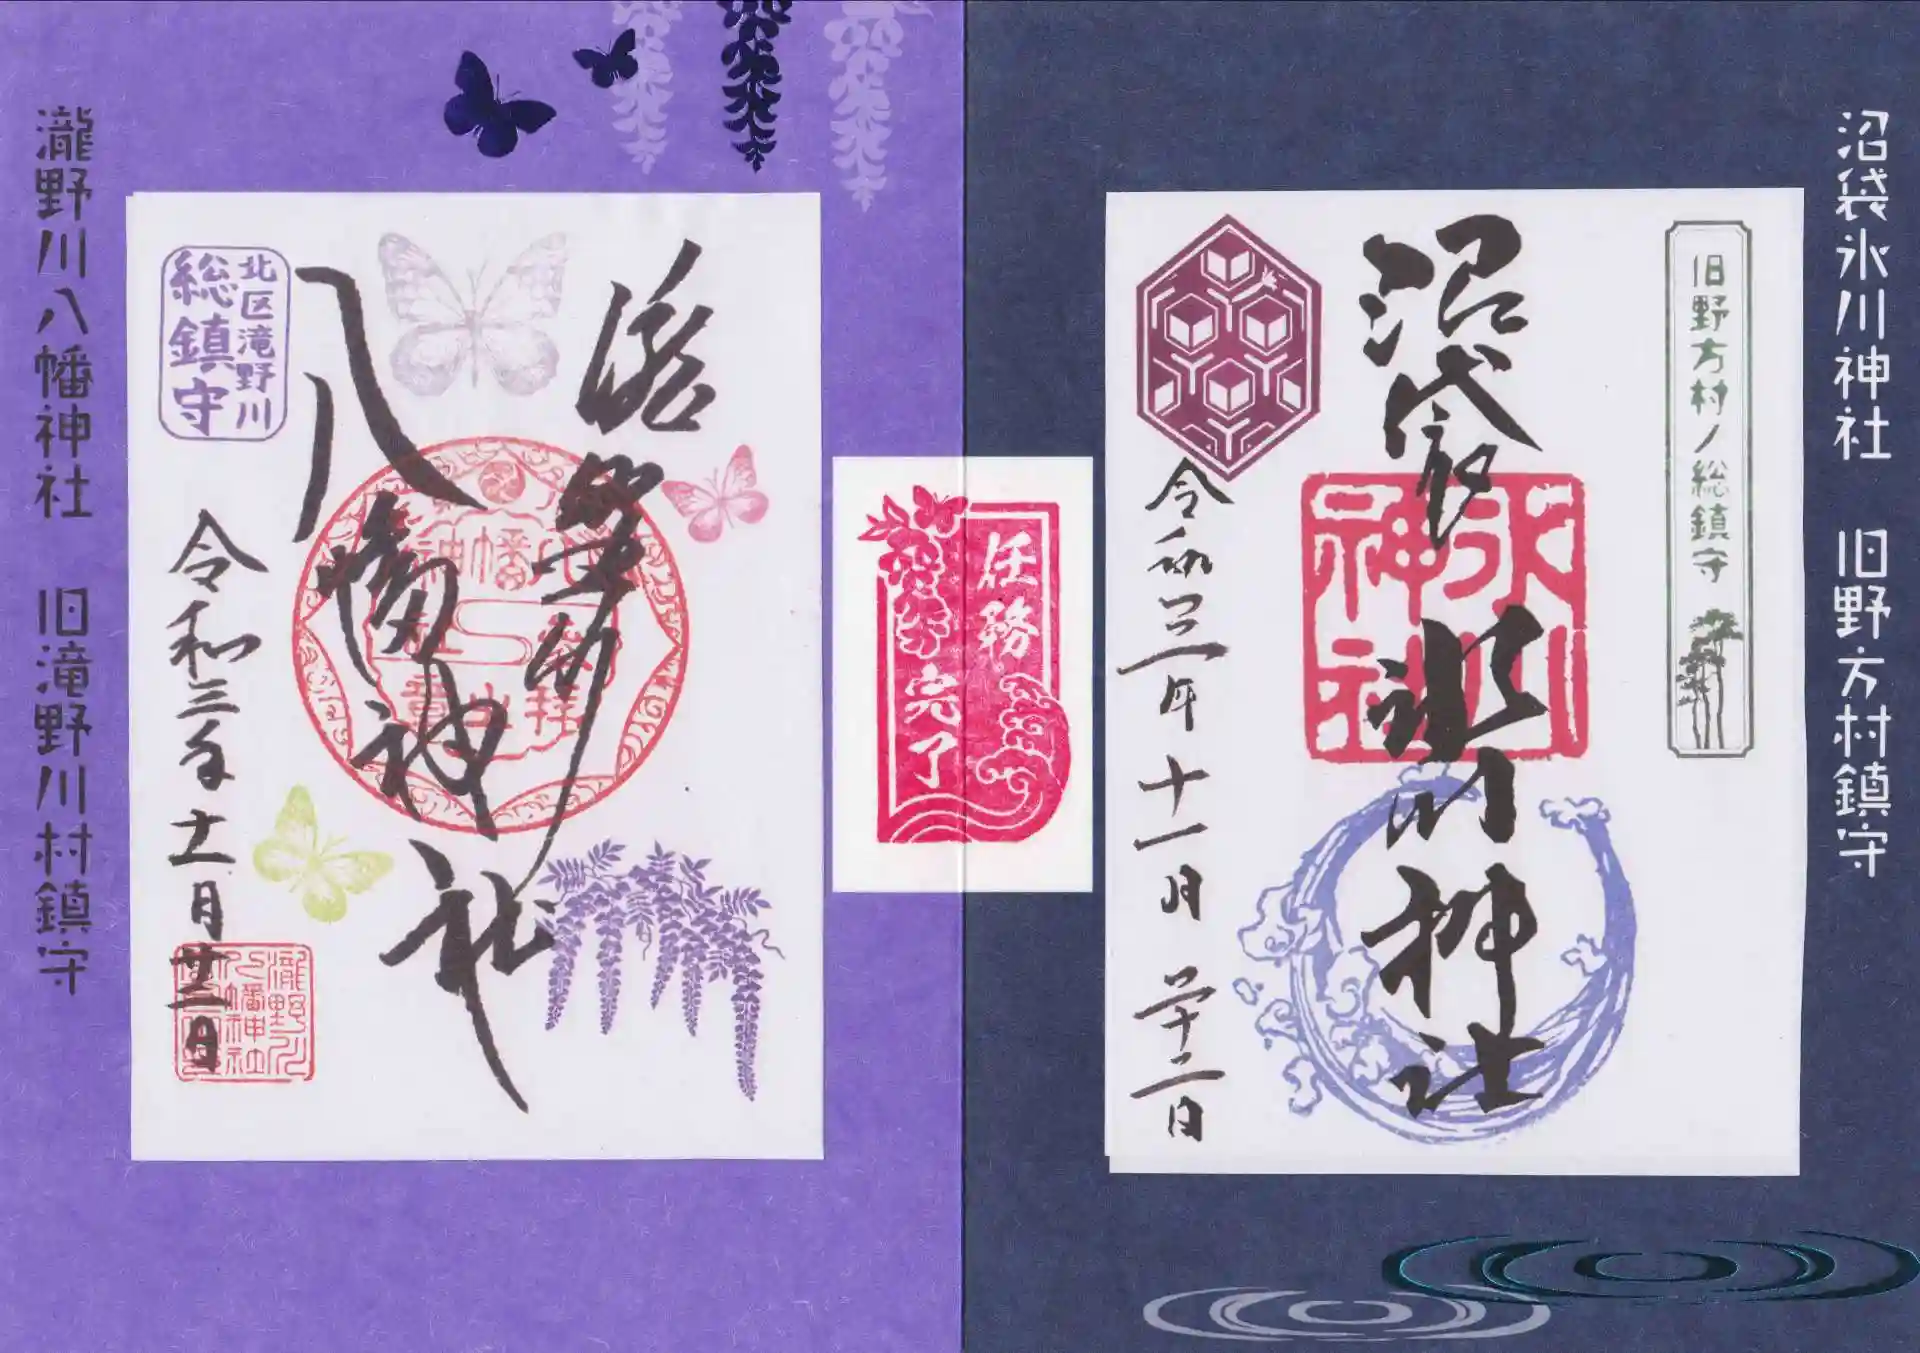 沼袋氷川神社 旧野方村鎮守
旧野方村ノ総鎮守
沼袋氷川神社
氷川
神社
令和三年十一月二十二日
任務
完了
滝野川
八幡神社
北区滝野川
総鎮守
令和三年十一月廿二日
瀧野川
八幡神社
瀧野川八幡神社 旧滝野川村鎮守